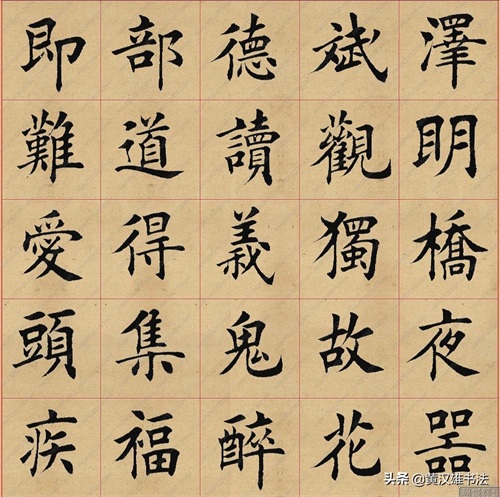 即部德斌澤
難道讀觀明
愛得義獨橋
頭集鬼故夜
疾福醉花器
头条 @黄汉雄书法